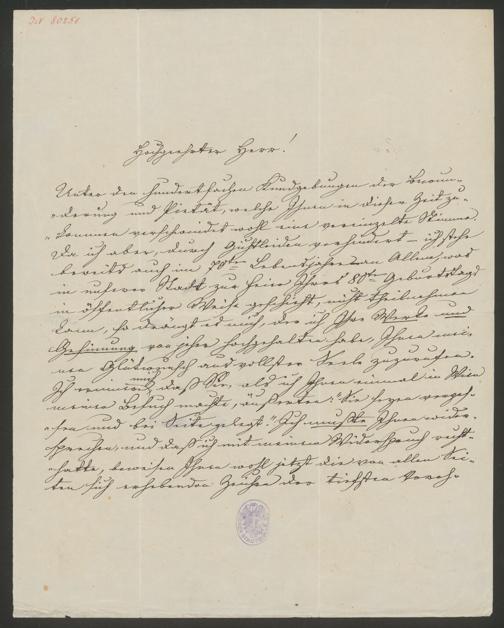 IN 80258
Hochgeehrter Herr!
Unter den hundertfachen Kundgebungen der Bewun-
„derung und Pietät, welche Ihnen in dieser Zeit zu-
„kommen verschwindet wohl eine vereinzelte Stimme.
Da ich aber, durch Gichtleiden verhindert – ich stehe
bereits auch im 70ten Lebensjahre – an Allem, was
in unserer Stadt zur Feier Ihres 80ten Geburtstags
in öffentlicher Weise geschieht, nicht theilnehmen
kann, so drängt es mich, der ich Ihre Werke und
Gesinnung von jeher hochgehalten habe, Ihnen mei-
nen Glückwunsch aus vollster Seele zuzurufen.
Ich erinnere mich, daß Sie, als ich Ihnen einmal in Wien
meinen Besuch machte, äußerten: „Sie seyen verges-
„sen und bei Seite gelegt." Ich mußte Ihnen wider-
sprechen, und daß ich mit meinem Widerspruch recht
hatte, beweisen Ihnen wohl jetzt die von allen Sei-
ten sich erhebenden Zeichen der tiefsten Vereh-